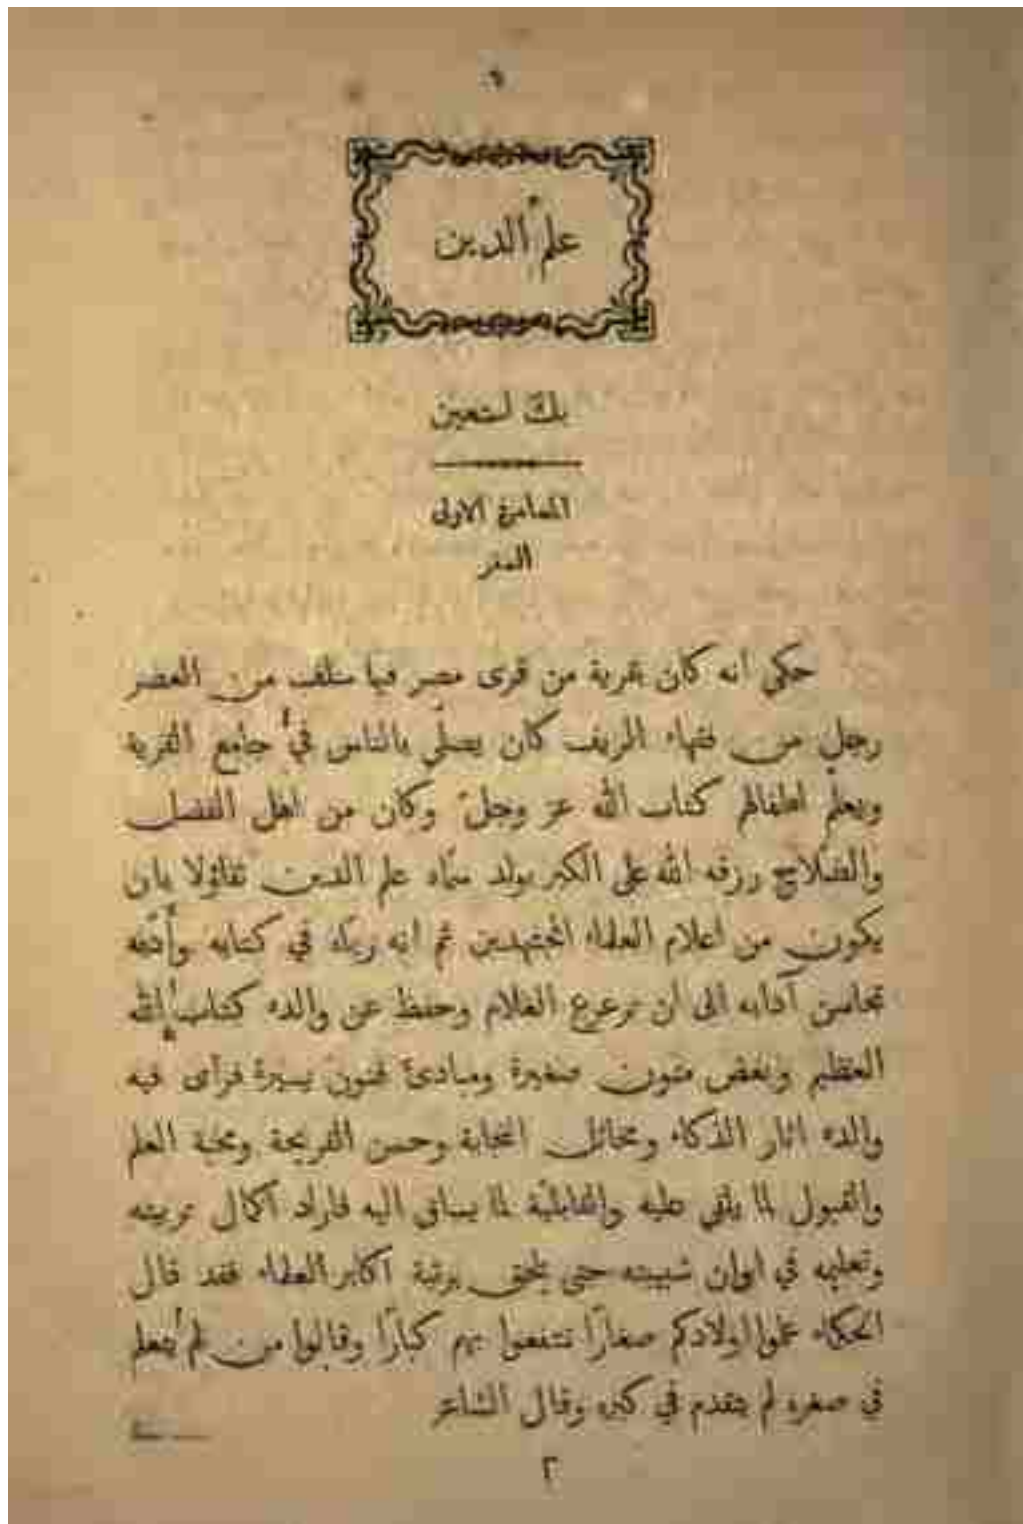 ٩
علم الدين
بك نستعين
المسامرة الاولى
السفر
حكي انه كان بقرية من قرى مصر فيما سلف من العصر
رجل من فقهاء الريف كان يصلّي بالناس في جامع القرية
ويعلّم اطفالهم كتاب الله عز وجلّ وكان من اهل الفضل
والصّلاح رزقه الله على الكبر بولد سمّاه علم الدين تفاؤلا بان
يكون من اعلام العلماء المجتهدين ثم انه ربّاه في كتابه وأدّبه
بمحاسن آدابه الى ان ترعرع الغلام وحفظ عن والده كتاب الله
العظيم وبعض متون صغيرة ومبادئ فنون يسيرة فرأى فيه
والده اثار الذكاء ومخائل النجابة وحسن القريحة ومحبة العلم
والقبول لما يلقى عليه والقابليّة لما يساق اليه فاراد اكمال تربيته
وتعليمه في اوان شبيبته حتى يلحق برتبة اكابر العلماء فقد قال
الحكماء علموا اولادكم صغارًا تنتفعوا بهم كبارًا وقالوا من لم يتعلم
في صغره لم يتقدم في كبره وقال الشاعر
٢